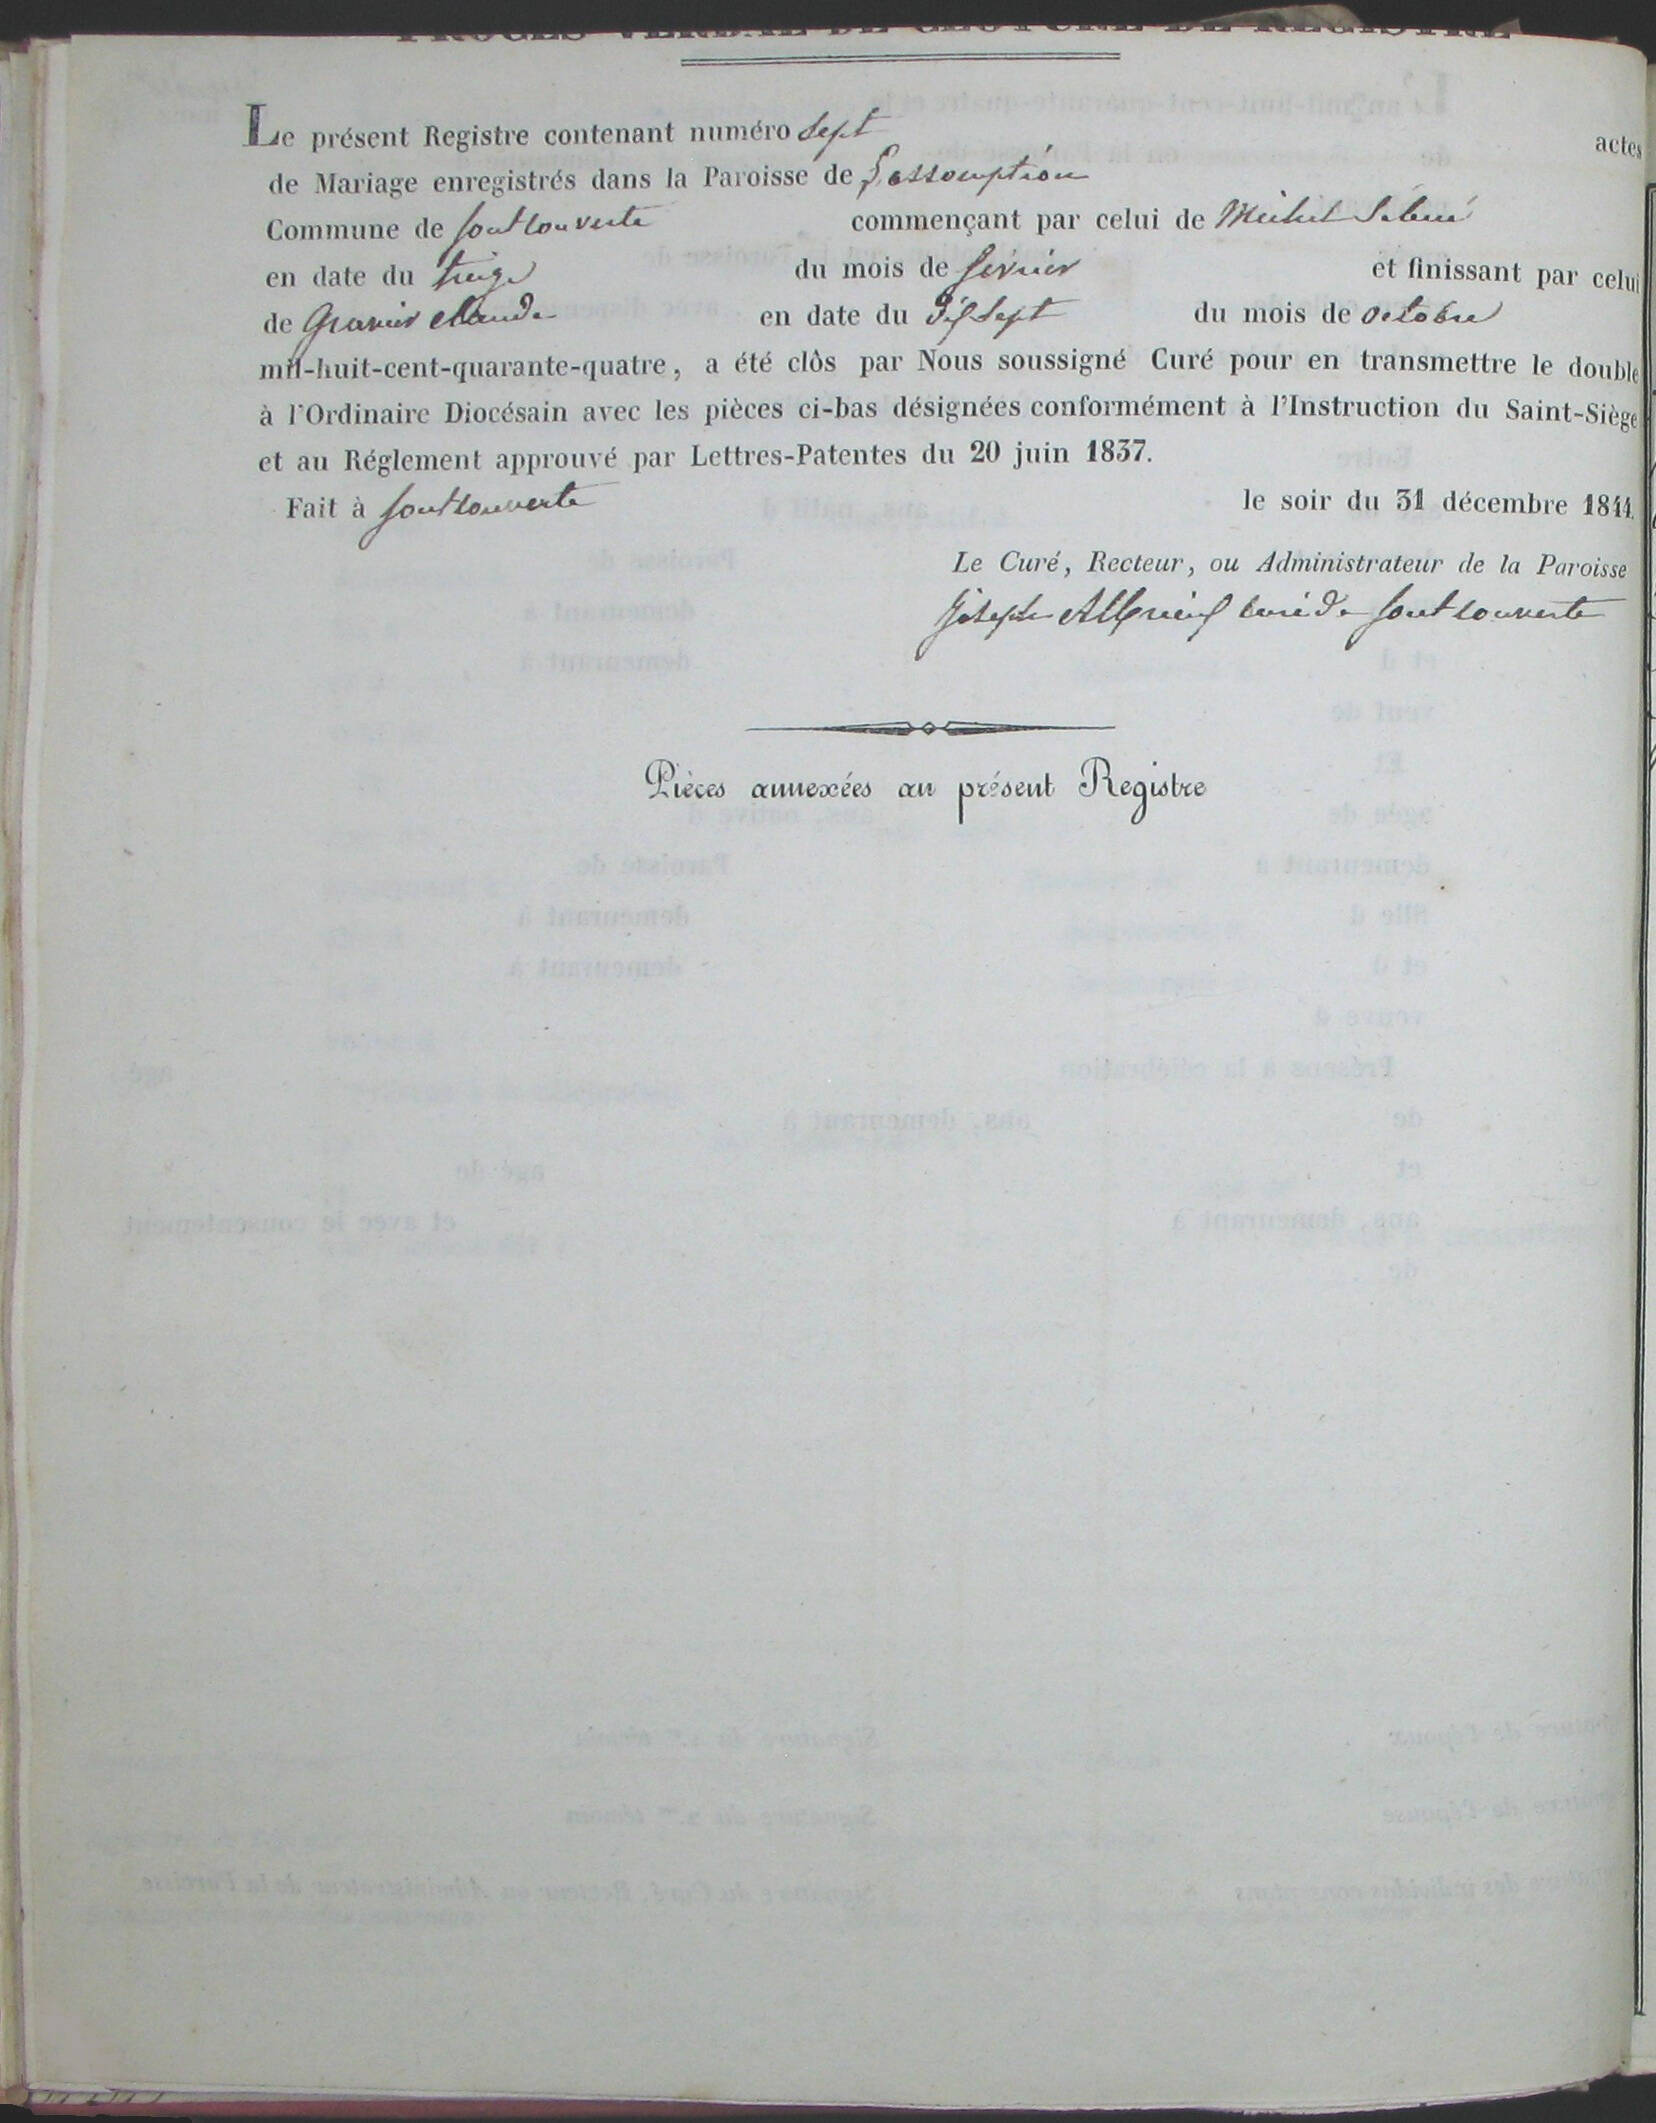 PROCÈS VERBAL DE CLÔTURE DE REGISTRE
Le présent Registre contenant numéro sept actes
de Mariage enregistrés dans la Paroisse de L'assomption
Commune de fontcouverte commençant par celui de Michel
en date du treize du mois de février et finissant par celui
de Gravier claude en date du dix sept du mois de octobre
mil-huit-cent-quarante-quatre, a été clôs par Nous soussigné Curé pour en transmettre le double
à l'Ordinaire Diocésain avec les pièces ci-bas désignées conformément à l'Instruction du Saint-Siège
et au Réglement approuvé par Lettres-Patentes du 20 juin 1837.
Fait à fontcouverte le soir du 31 décembre 1844.
Le Curé, Recteur, ou Administrateur de la Paroisse
Joseph curé de fontcouverte
Pièces annexées au présent Registre